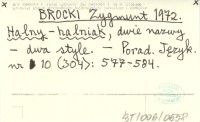 BROCKI Zygmunt 1972.
Halny – halniak, dwie nazwy
– dwa style. – Porad. Język.
nr 10 (304): 577-584.